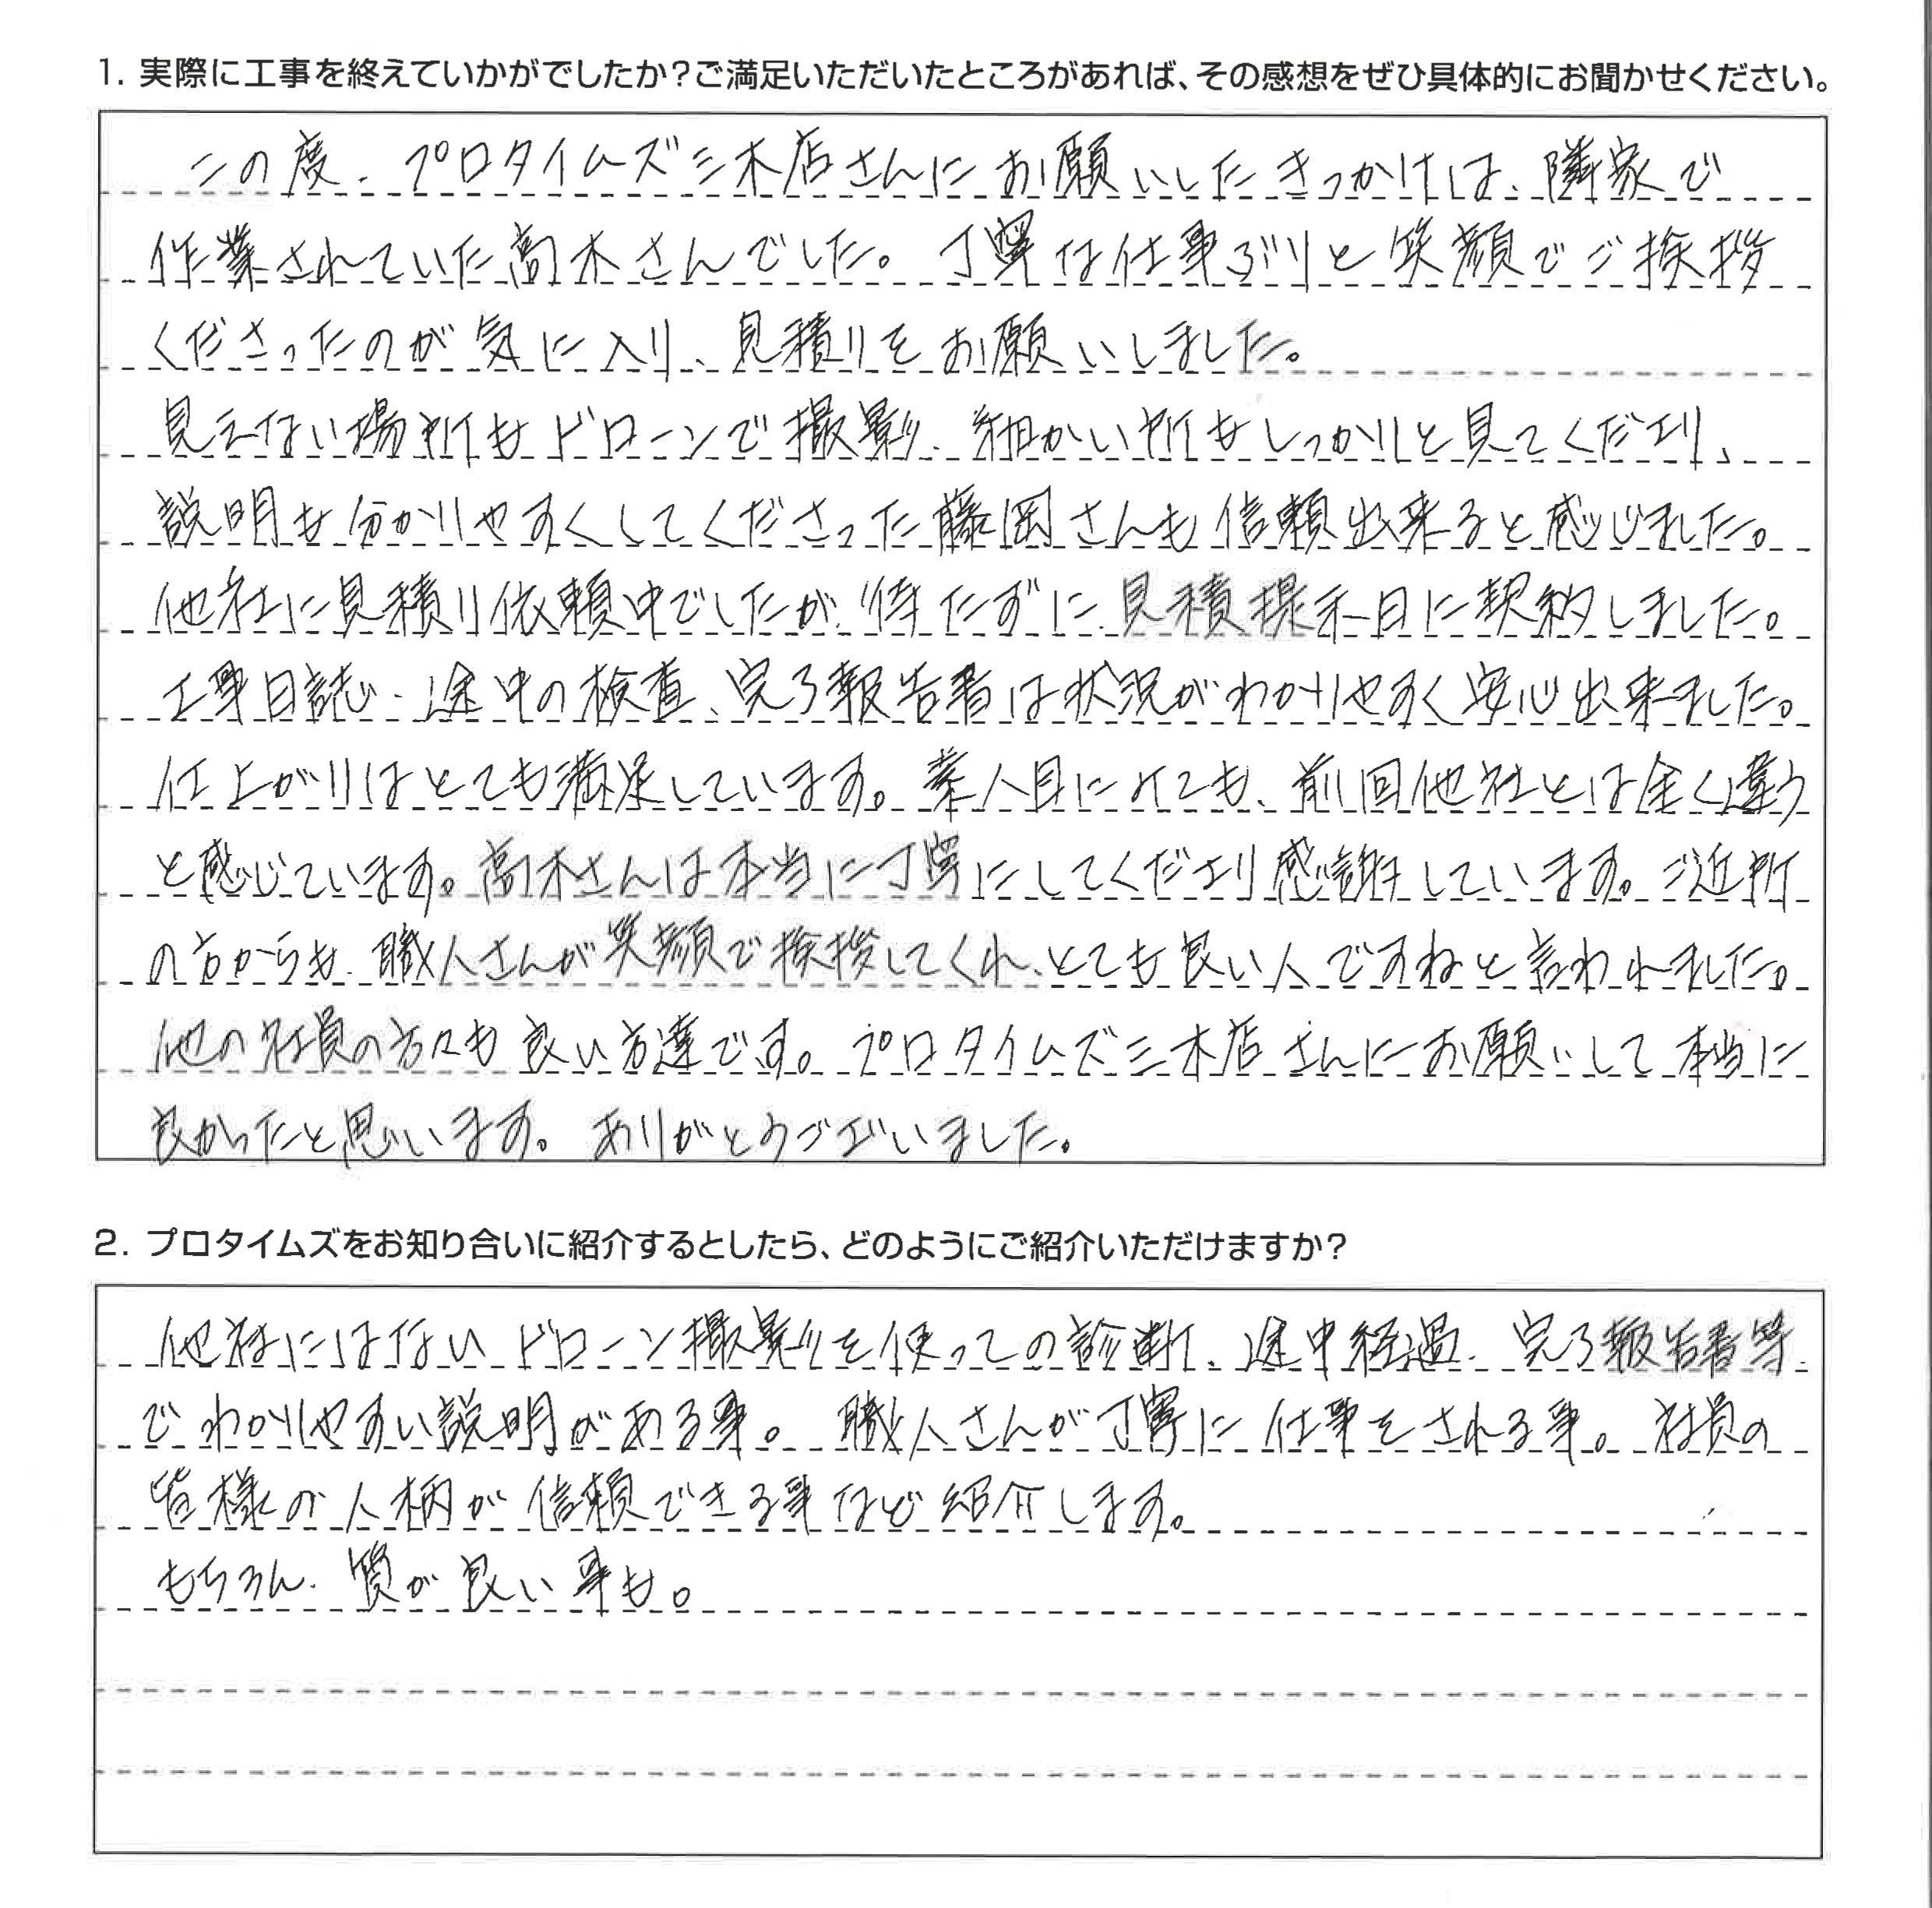 1. 実際に工事を終えていかがでしたか?ご満足いただいたところがあれば、その感想をぜひ具体的にお聞かせください。
この度、プロタイムズ三木店さんにお願いしたきっかけは、隣家で
作業されていた高木さんでした。丁寧な仕事ぶりと笑顔でご挨拶
くださったのが気に入り、見積りをお願いしました。
見えない場所もドローンで撮影、細かい所もしっかりと見てくださり、
説明も分かりやすくしてくださった藤岡さんも信頼出来ると感じました。
他社に見積り依頼中でしたが、待たずに、見積提示日に契約しました。
工事日誌、途中の検査、完了報告書は状況がわかりやすく安心出来ました。
仕上がりはとても満足しています。素人目にみても、前回他社とは全く違う
と感じています。高木さんは本当に丁寧にしてくださり感謝しています。ご近所
の方からも、職人さんが笑顔で挨拶してくれ、とても良い人ですねと言われました。
他の社員の方々も良い方達です。プロタイムズ三木店さんにお願いして本当に
良かったと思います。ありがとうございました。
2. プロタイムズをお知り合いに紹介するとしたら、どのようにご紹介いただけますか?
他社にはないドローン撮影を使っての診断、途中経過、完了報告書等
でわかりやすい説明がある事。職人さんが丁寧に仕事をされる事。社員の
皆様の人柄が信頼できる事など紹介します。
もちろん、質が良い事も。